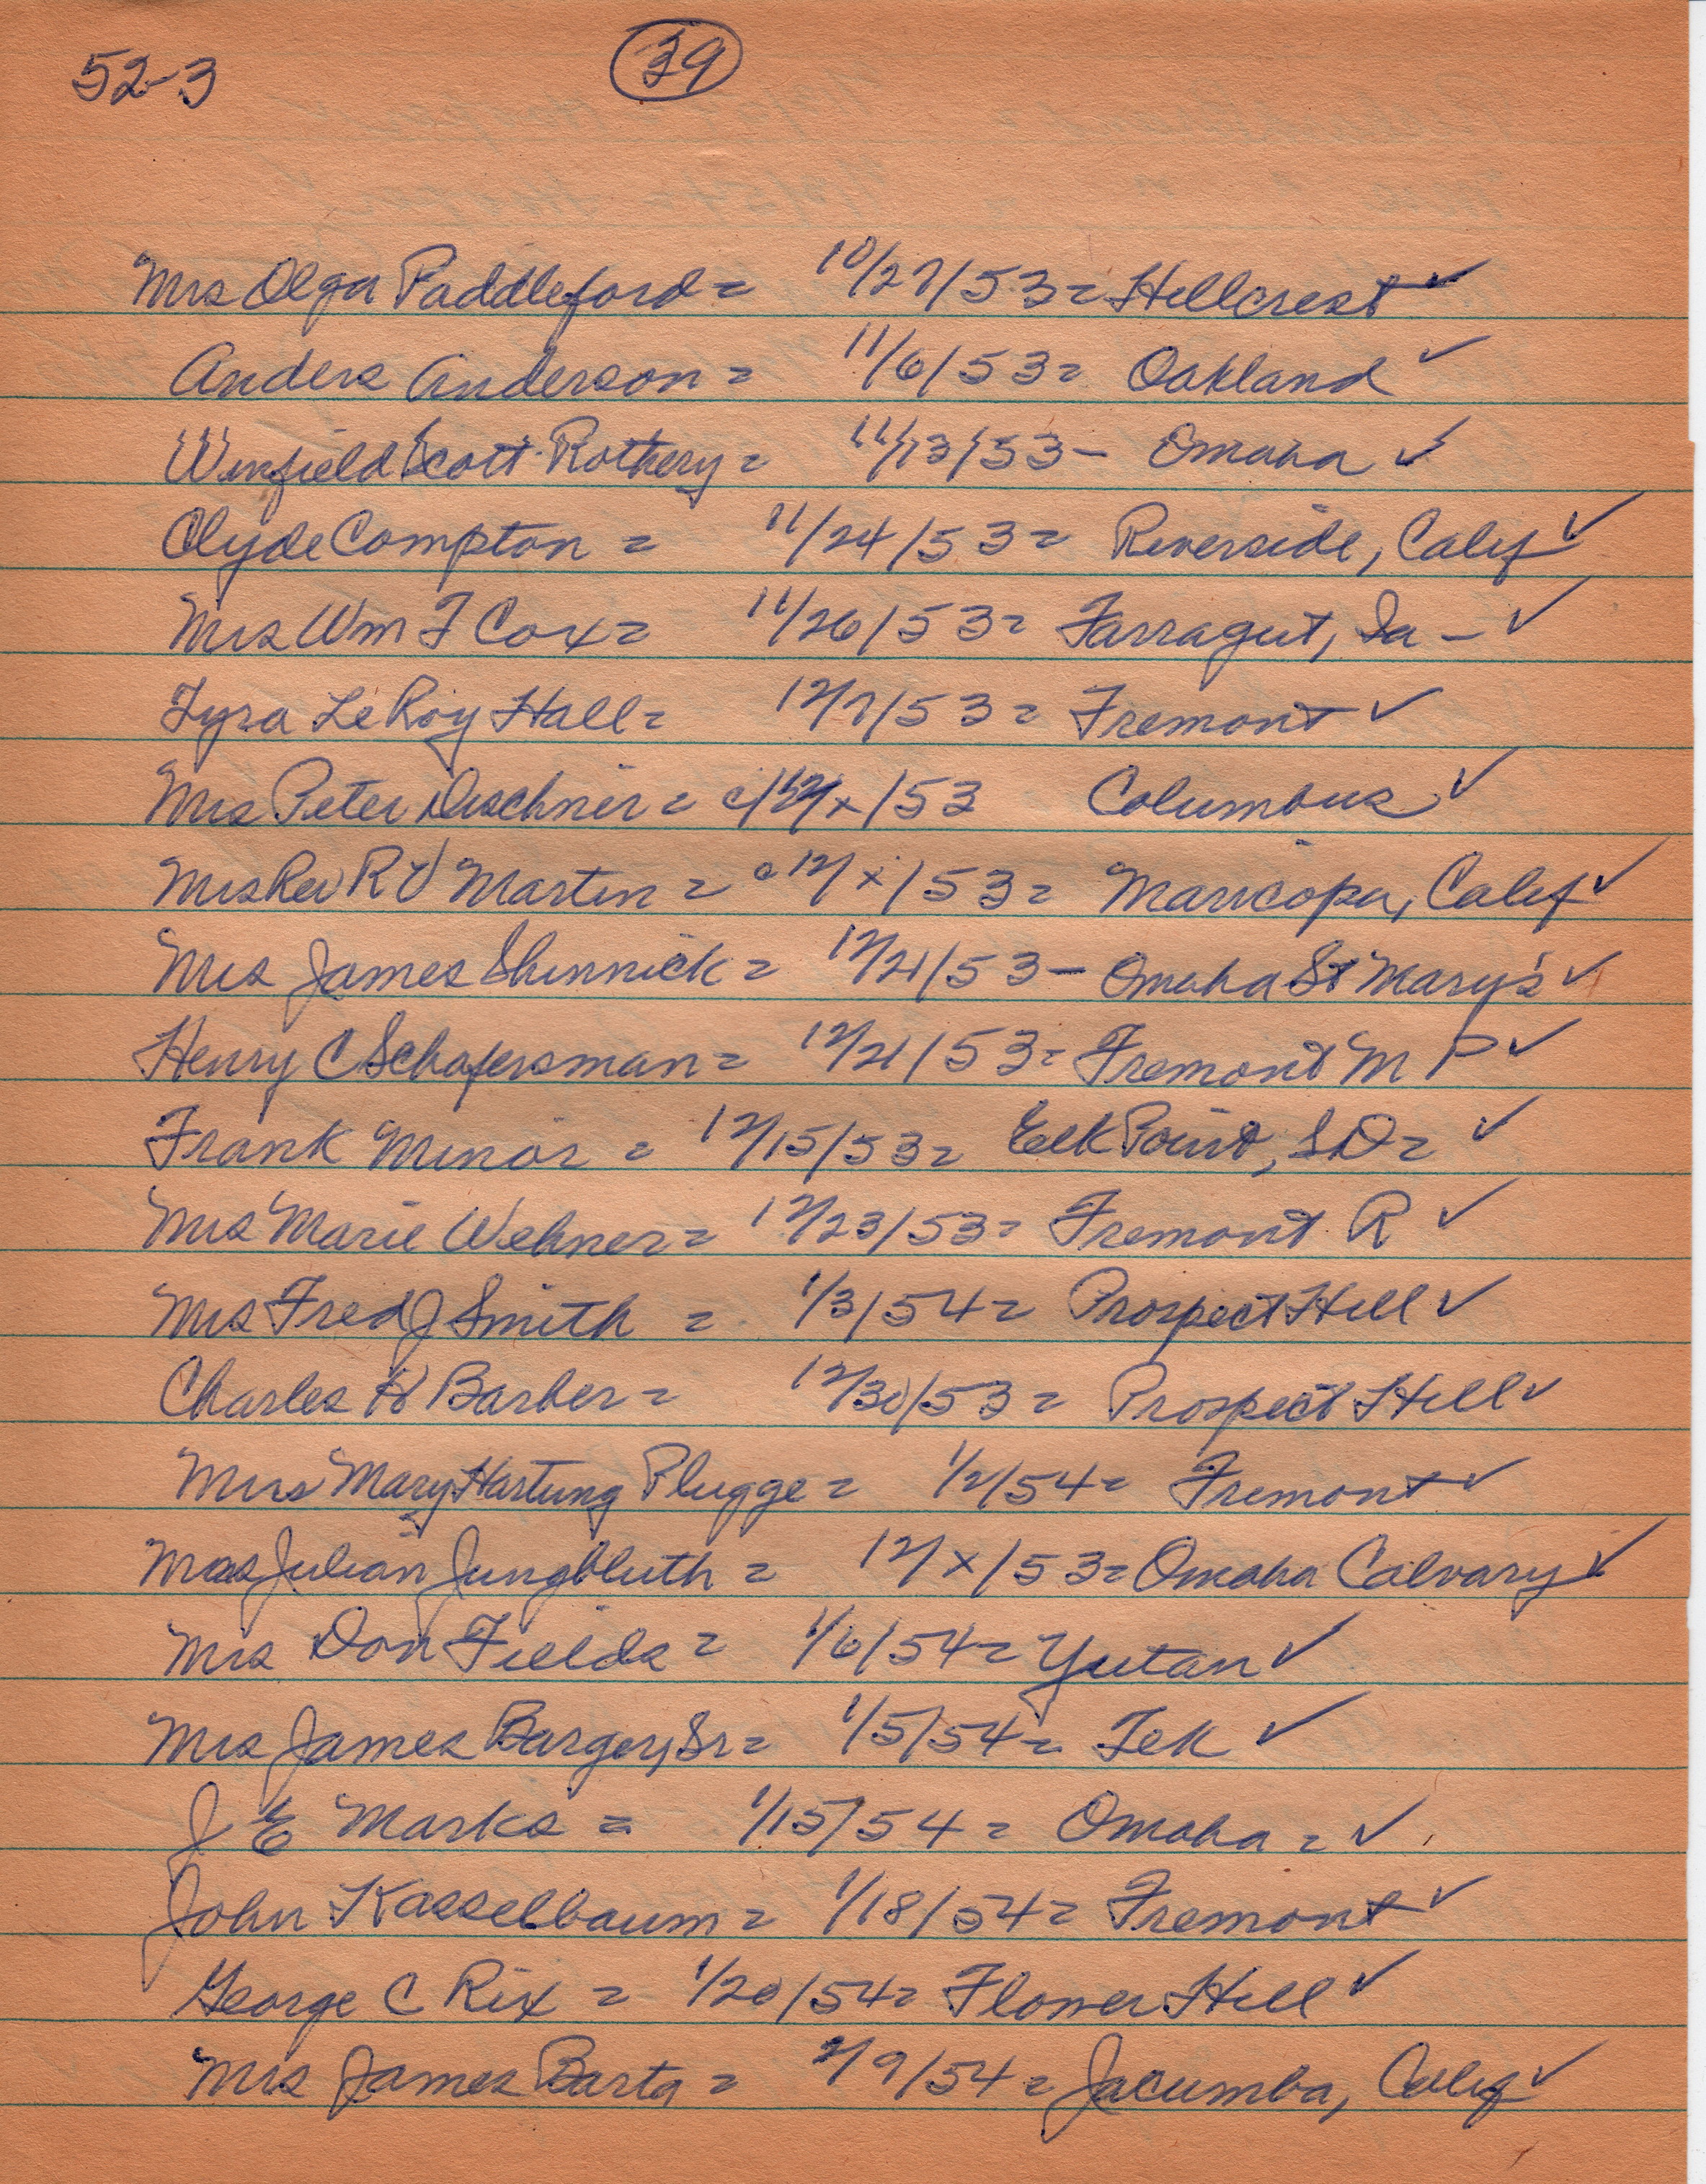 52-3 39
Mrs Olga Paddleford = 10/27/53 = Hillcrest ✓
Anders Anderson = 11/6/53 = Oakland ✓
Winfield Scott Rothery = 11/13/53 - Omaha ✓
Clyde Compton = 11/24/53 = Riverside, Calif ✓
Mrs Wm F Cox = 11/26/53 = Farragut, Ia - ✓
Tyra LeRoy Hall = 12/7/53 = Fremont ✓
Mrs Peter Dischner = c 12/x/53 Columbus ✓
Mrs Rev R V Martin = c 12/x/53 = Maricopa, Calif ✓
Mrs James Shinnick = 12/21/53 - Omaha St Mary's ✓
Henry C Schafersman = 12/21/53 = Fremont M P ✓
Frank Minor = 12/15/53 = Elk Point, SD = ✓
Mrs Marie Wehner = 12/23/53 = Fremont R ✓
Mrs Fred J Smith = 1/3/54 = Prospect Hill ✓
Charles H Barber = 12/30/53 = Prospect Hill ✓
Mrs Mary Hartung Plugge = 1/2/54 = Fremont ✓
Mrs Julian Jungbluth = 12/x/53 = Omaha Calvary ✓
Mrs Don Fields = 1/6/54 = Yutan ✓
Mrs James Bargery, Sr = 1/5/54 = Tek ✓
J E Marks = 1/15/54 = Omaha = ✓
John Kasselbaum = 1/18/54 = Fremont ✓
George C Rix = 1/20/54 = Flower Hill ✓
Mrs James Barta = 2/9/54 = Jacumba, Calif ✓